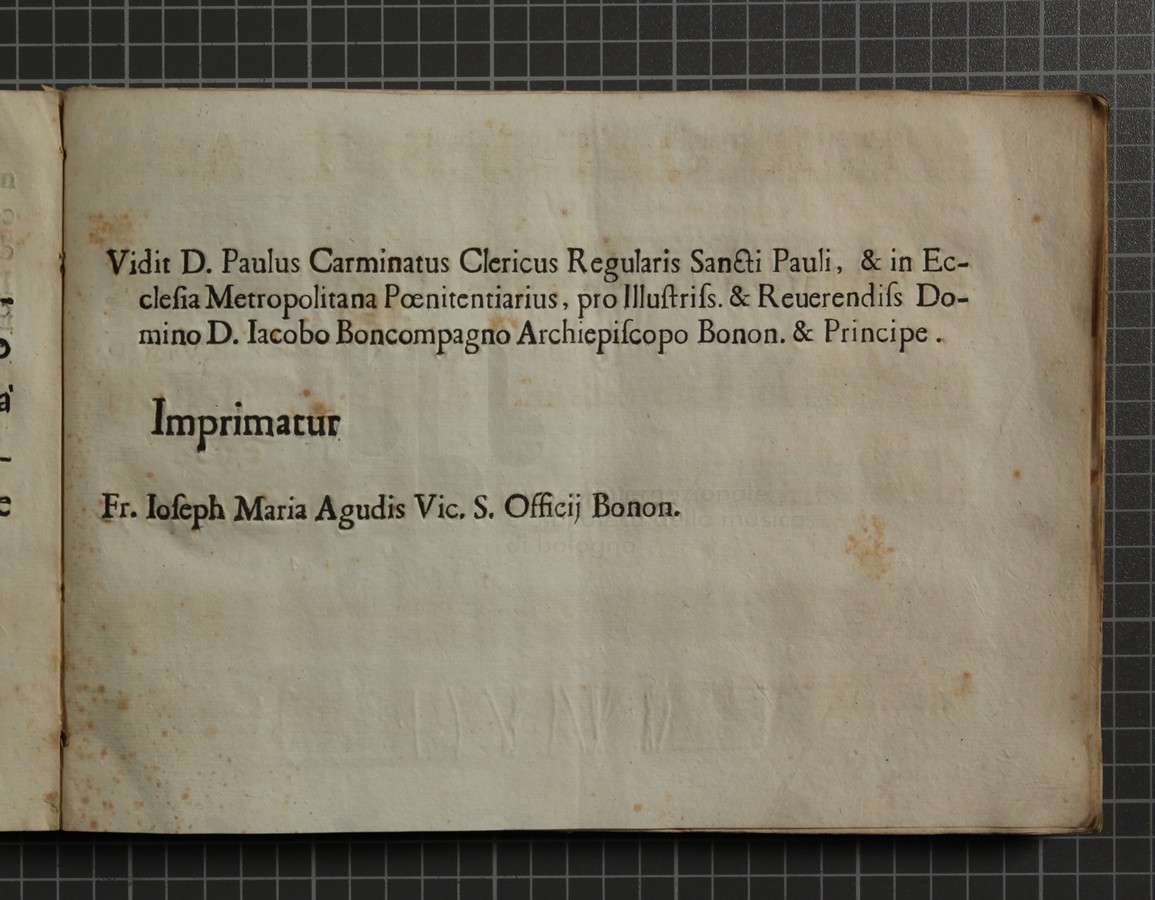 Vidit D. Paulus Carminatus Clericus Regularis Sancti Pauli, & in Ec-
cleſia Metropolitana Pœnitentiarius, pro Illuſtriſs. & Reuerendiſs Do-
mino D. Iacobo Boncompagno Archiepiſcopo Bonon. & Principe.
Imprimatur
Fr. Ioſeph Maria Agudis Vic. S. Officij Bonon.
della musica
di bologna